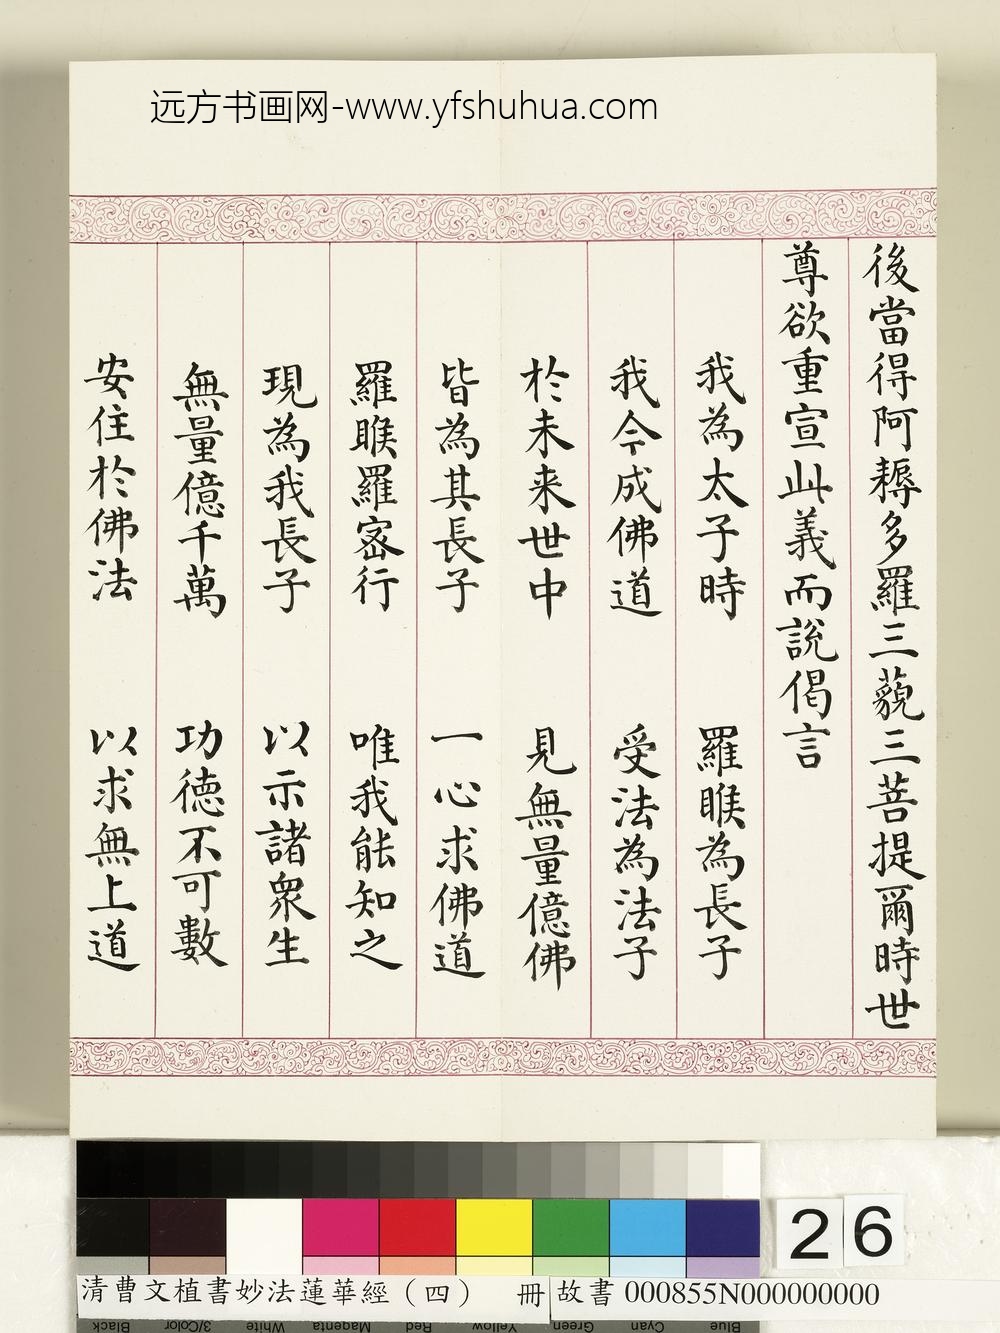 远方书画网-www.yfshuhua.com
後當得阿耨多羅三藐三菩提爾時世
尊欲重宣此義而說偈言
我為太子時 羅睺為長子
我今成佛道 受法為法子
於未来世中 見無量億佛
皆為其長子 一心求佛道
羅睺羅密行 唯我能知之
現為我長子 以示諸衆生
無量億千萬 功德不可數
安住於佛法 以求無上道
26
清曹文植書妙法蓮華經（四） 冊 故書 000855N000000000
Black 3/Color White Magenta Red Yellow Green Cyan Blue